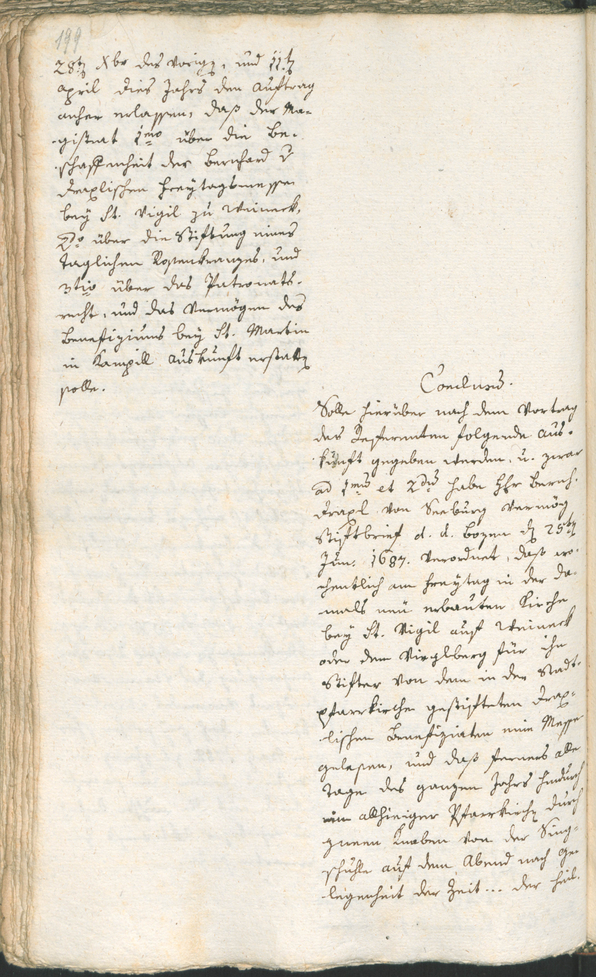 199
28t Xbr des vorig, und 11t
April dies Jahrs den Auftrag
anher erlassen, daß der Ma-
gistrat 1mo über die Be-
schaffenheit der Bernhard v
Draxlischen Freytagsmessen
bey St. Vigil zu Weineck,
2do über die Stiftung eines
taglichen Rosenkranzes, und
3tio über das Patronats-
recht, und das Vermögen des
Benefiziums bey St. Martin
in Kampill Auskunft erstatt
solle.
Conclusum.
Solle hierüber nach dem Vortrag
des Referenten folgende Aus-
kunft gegeben werden, u. zwar
ad 1mum et 2dum habe Hr Bernh.
Draxl von Seeburg vermög
Stiftbrief d. d. Bozen d 25ten
Jun. 1687. verordnet, daß wo-
chentlich am Freytag in der da-
mals neu erbauten Kirche
bey St. Vigil auf Weineck
oder dem Virglberg für ihn
Stifter von dem in der Stadt-
pfarrkirche gestifteten Drax-
lischen Benefiziaten eine Messe
gelesen, und daß ferners alle
Tage des ganzen Jahrs hindurch
in allhieiger Pfarrkirche durch
zween Knaben von der Sing-
schuhle auf dem Abend nach Ge-
legenheit der Zeit... der heil.